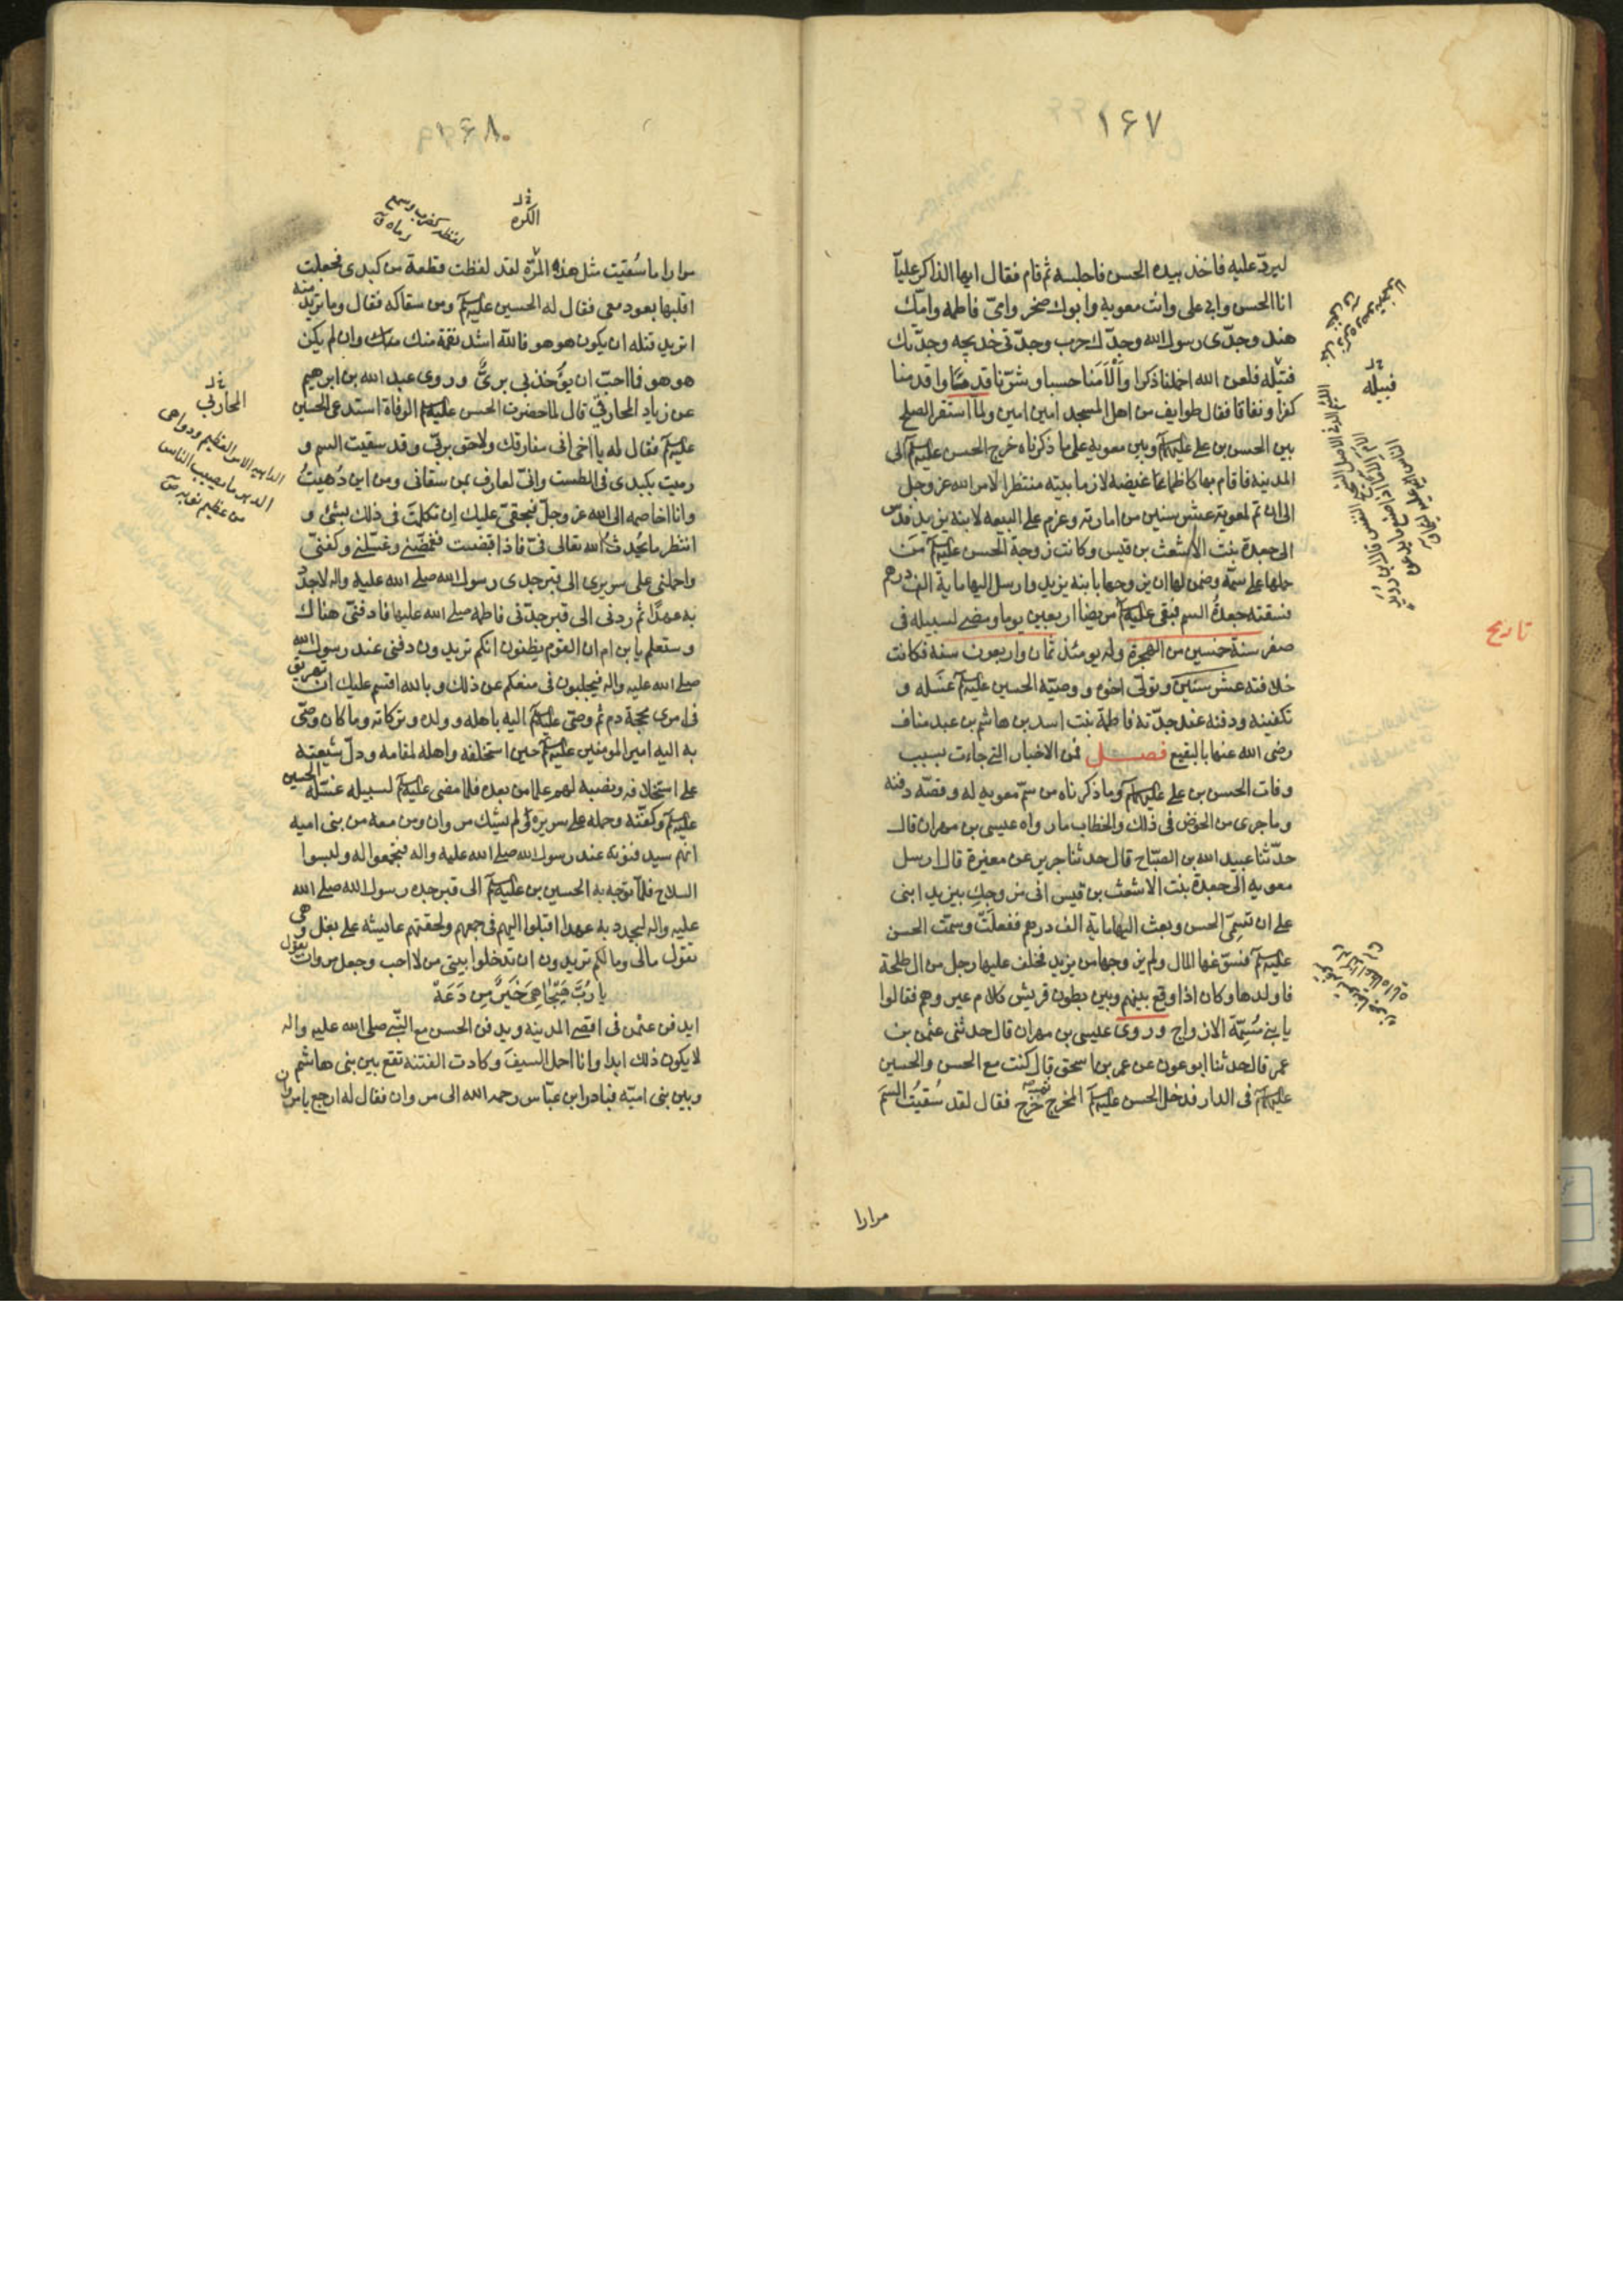 ١۶٧
ليردّ عليه فاخذ بيده الحسن فاجلسه ثم قام فقال ايها الذاكر عليّا
انا الحسن وابي على وانت معويه وابوك صخر وامّى فاطمه وامّك
هند وجدّى رسول الله وجدّك حرب وجدّتى خديجه وجدّتك
قتيله فلعن الله اخملنا ذكرا وألأمنا حسبا وشرّنا قدما واقدمنا
كفرا ونفاقا فقال طوايف من اهل المسجد امين امين ولمّا استقر الصلح
بين الحسن بن على عليهما السلام وبين معويه على ما ذكرناه خرج الحسن عليه السلام الى
المدينه فاقام بها كاظما غيضه لازما بيته منتظرا لامر الله عز وجل
الى ان تم لمعوية عشر سنين من امارته وعزم على البيعه لابنه يزيد فدس
الى جعدة بنت الاشعث بن قيس وكانت زوجة الحسن عليه السلام من
حملها على سمّه وضمن لها ان يزوجها بابنه يزيد وارسل اليها ماية الف درهم
فسقته جعدة السم فبقى عليه السلام مريضا اربعين يوما ومضى لسبيله فى
صفر سنة خمسين من الهجرة وله يومئذ ثمان واربعون سنة فكانت
خلافته عشر سنين وتولّى اخوه ووصيّه الحسين عليه السلام غسله و
تكفينه ودفنه عند جدّته فاطمة بنت اسد بن هاشم بن عبد مناف
رضى الله عنها بالبقيع فصــل فمن الاخبار التى جاءت بسبب
وفات الحسن بن على عليهما السلام وما ذكرناه من سمّ معويه له وقصّه دفنه
وما جرى من الخوض فى ذلك والخطاب ما رواه عيسى بن مهران قال
حدّثنا عبيد الله بن الصبّاح قال حدثنا جرير عن مغيرة قال ارسل
معويه الى جعدة بنت الاشعث بن قيس انى مزوجك بيزيد ابنى
على ان تسمّى الحسن وبعث اليها ماية الف درهم ففعلت وسمّت الحسن
عليه السلام فسوّغها المال ولم يزوجها من يزيد فخلف عليها رجل من ال طلحة
فاولدها وكان اذا وقع بينهم وبين بطون قريش كلام عيروهم فقالوا
يا بنى مُسِمّة الازواج وروى عيسى بن مهران قال حدثنى عثمن بن
عمر قال حدثنا ابو عون عن عمر بن اسحق قال كنت مع الحسن والحسين
عليهما السلام فى الدار فدخل الحسن عليه السلام المخرج ثم خرج فقال لقد سُقيتُ السمّ
مرارا
قبيله
تاريخ
١۶٨
الكره
مرارا ما سُقيت مثل هذه المرّة لقد لفظت قطعة من كبدى فجعلت
اقلبها بعود معى فقال له الحسين عليه السلام ومن سقاكه فقال وما تريد منه
اتريد قتله ان يكون هو هو فالله اشد نقمة منك وان لم يكن
هو هو فما احبّ ان يؤخذ بى برىءٌ وروى عبد الله بن ابرهيم
عن زياد المحاربىّ قال لما حضرت الحسن عليه السلام الوفاة استدعى الحسين
عليه السلام فقال له يا اخى انى مفارقك ولاحق بربّى وقد سقيت السم و
رميت بكبدى فى الطست وانّى لعارف بمن سقانى ومن اين دُهيتُ
وانا اخاصمه الى الله عز وجلّ فبحقّى عليك ان تكلمت فى ذلك بشىء و
انتظر ما يحدث الله تعالى فىّ فاذا قضيت فغمّضنى وغسّلنى وكفنّى
واحملنى على سريرى الى قبر جدى رسول الله صلى الله عليه واله لاجدّد
به عهدًا ثم ردنى الى قبر جدّتى فاطمه صلى الله عليها فادفنّى هناك
وستعلم يا بن ام ان القوم يظنون انكم تريدون دفنى عند رسول الله
صلى الله عليه واله فيجلبون فى منعكم عن ذلك وبالله اقسم عليك ان تهريق
فى امرى محجة دم ثم وصّى عليه السلام اليه باهله وولده وتركاته وما كان وصّى
به اليه امير المومنين عليه السلام حين استخلفه واهله لمقامه ودلّ شيعته
على استخلافه ونصبه لهم علما من بعده فلما مضى عليه السلام لسبيله غسّله الحسين
عليه السلام وكفّنه وحمله على سريره ولم يشك مروان ومن معه من بنى اميه
انهم سيدفنونه عند رسول الله صلى الله عليه واله فتجمّعوا له ولبسوا
السلاح فلمّا توجّه به الحسين بن عليه السلام الى قبر جده رسول الله صلى الله
عليه واله ليجدد به عهدا اقبلوا اليهم فى جمعهم ولحقتهم عايشه على بغل وهى
تقول مالى ومالكم تريدون ان تدخلوا بيتى من لا احب وجعل مروان يقول
يا رُبَّ هَيْجَا هِىَ خَيْرٌ مِن دَعَة
ايدفن عثمن فى اقصى المدينه ويدفن الحسن مع النّبى صلى الله عليه واله
لا يكون ذلك ابدا وانا احمل السيف وكادت الفتنه تقع بين بنى هاشم
وبين بنى اميّه فبادر ابن عبّاس رحمه الله الى مروان فقال له ارجع يا مروان
المحاربي
الداهيه الامر العظيم ودواهى
الدهر ما يصيب الناس
من عظيم نوبه